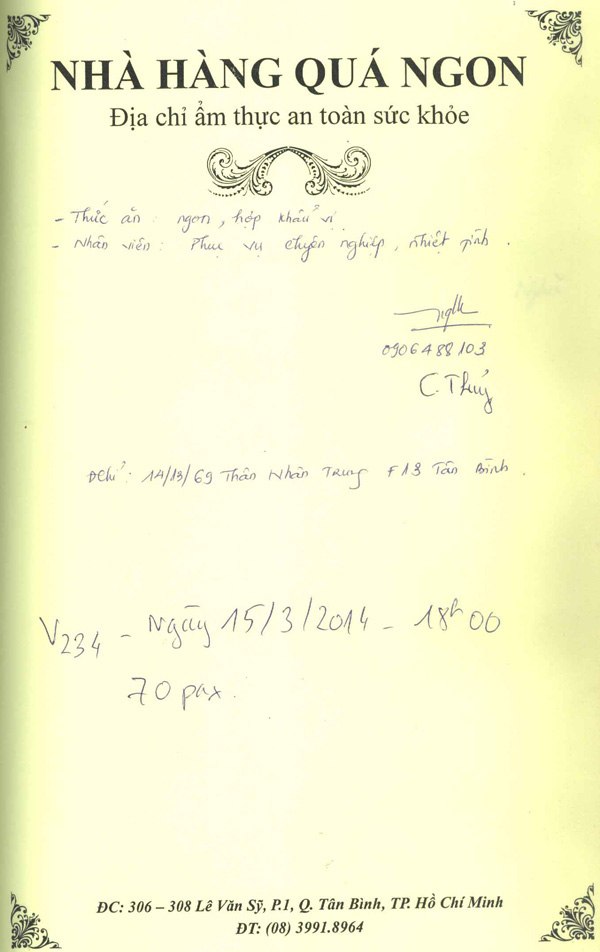 NHÀ HÀNG QUÁ NGON
Địa chỉ ẩm thực an toàn sức khỏe
- Thức ăn : ngon, hợp khẩu vị
- Nhân viên : Phục vụ chuyên nghiệp, nhiệt tình.
0906488103
C. Thúy
Đchỉ : 14/13/69 Thân Nhân Trung F13 Tân Bình.
V234 - Ngày 15/3/2014 - 18h00
70 pax.
ĐC: 306 – 308 Lê Văn Sỹ, P.1, Q. Tân Bình, TP. Hồ Chí Minh
ĐT: (08) 3991.8964